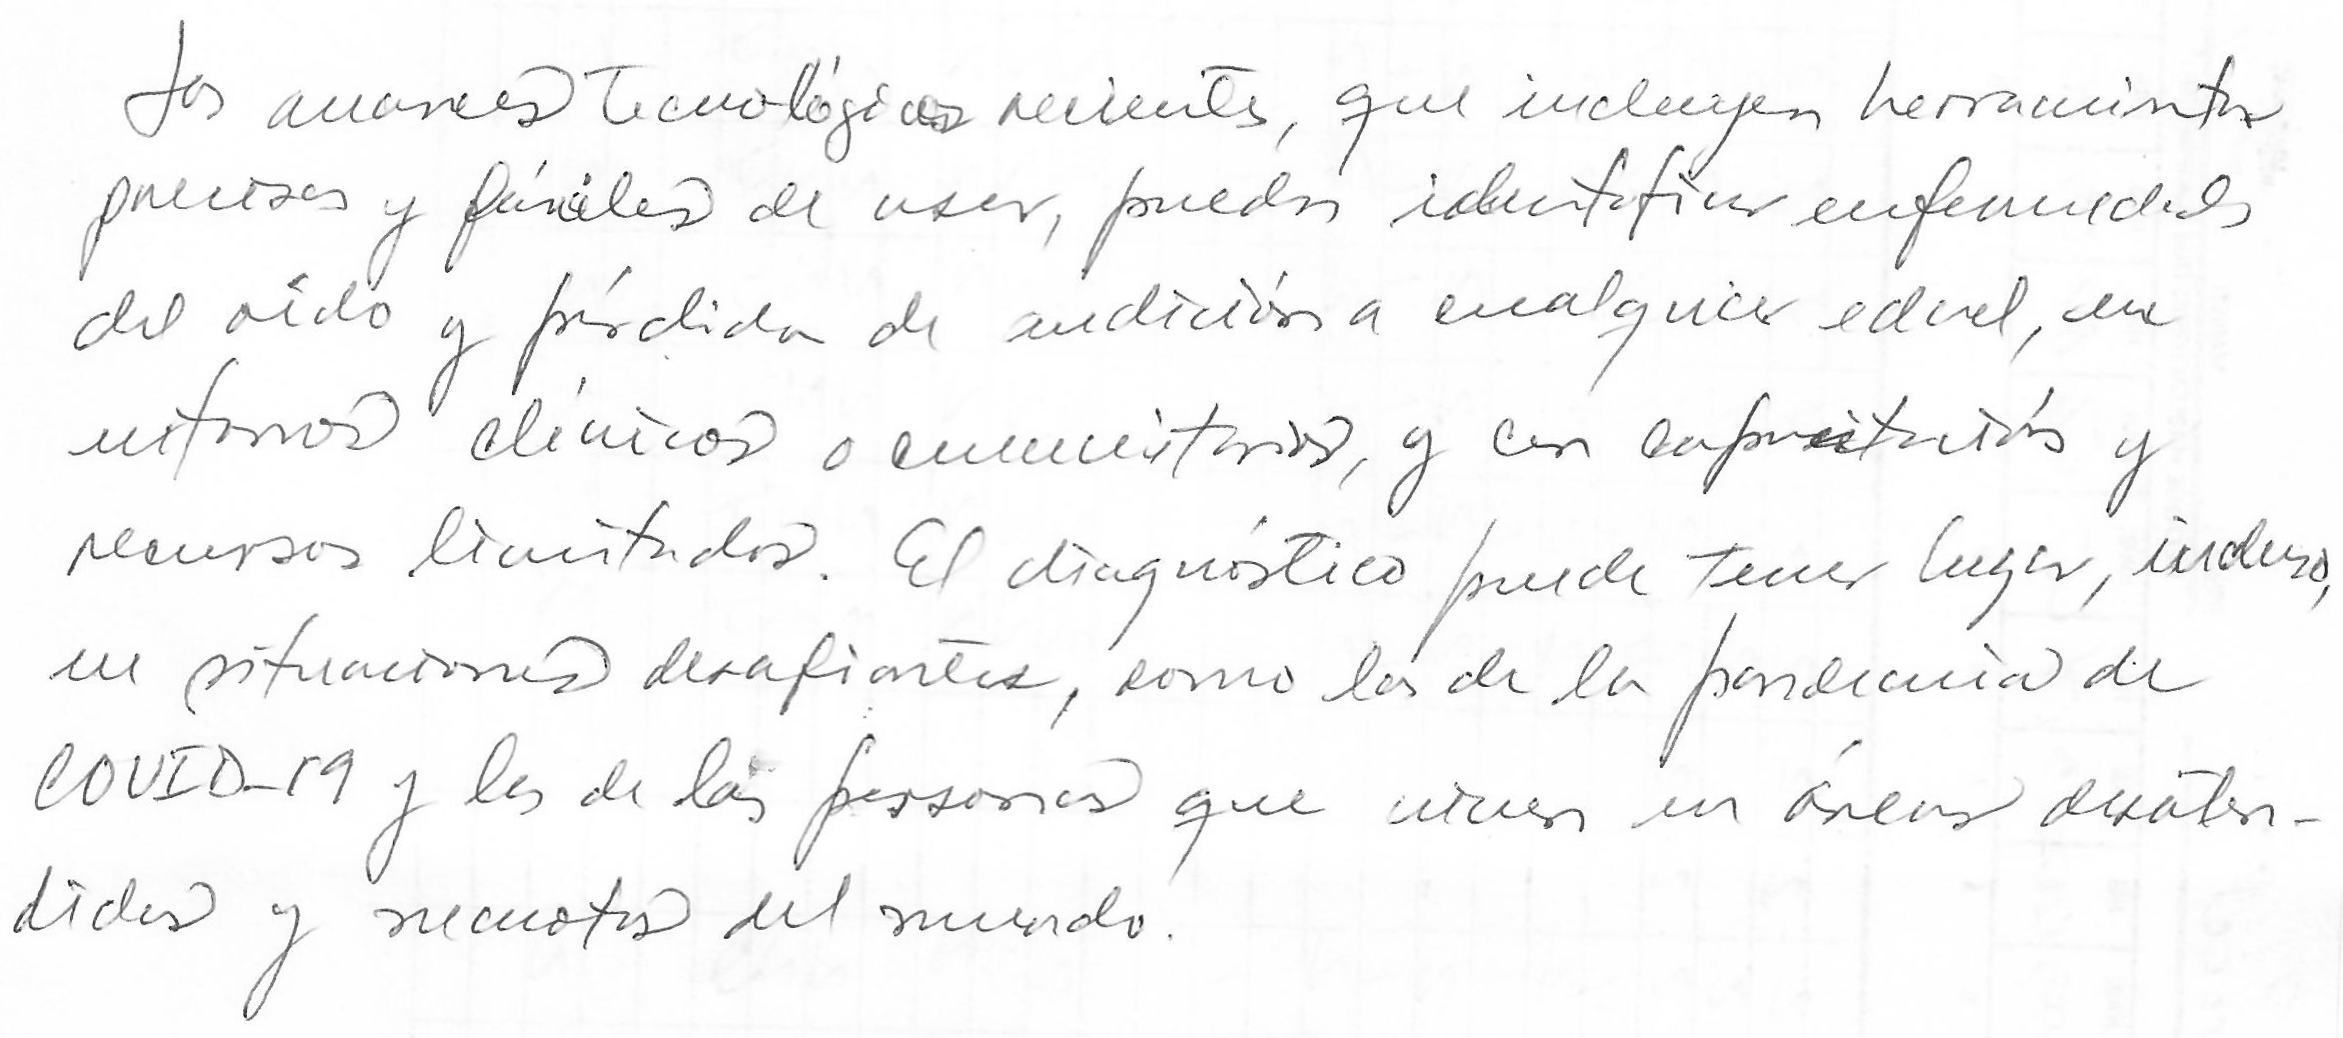 Los avances tecnológicos recientes, que incluyen herramientas
precisas y fáciles de usar, pueden identificar enfermedades
del oído y pérdida de audición a cualquier edad, en
entornos clínicos o comunitarios, y con capacitación y
recursos limitados. El diagnóstico puede tener lugar, incluso,
en situaciones desafiantes, como las de la pandemia de
COVID-19 y las de las personas que viven en áreas desaten-
didas y remotas del mundo.